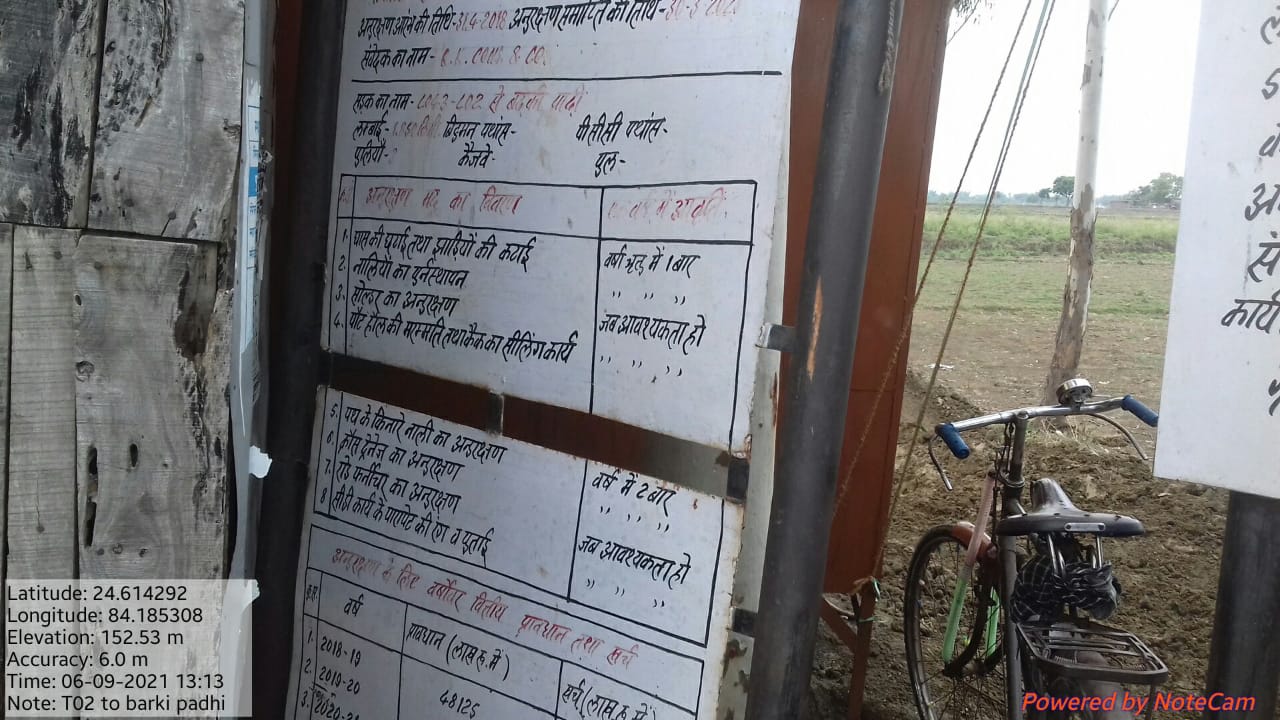 अनुरक्षण आरंभ की तिथि-31.4-2018 अनुरक्षण समाप्ति की तिथि-30-3-202
संवेदक का नाम-
सड़क का नाम- L043-L02 से बड़की पाढ़ी
लम्बाई- बिटुमन पथांस- पी सी सी पथांस-
पुलियाँ- कैजवे- पुल-
अनुरक्षण मद का विवरण
1. घास की छुराई तथा झाड़ियों की कटाई वर्षा ऋतु में 1 बार
2. नालियों का पुर्नस्थापन ,, ,, ,,
3. सोल्डर का अनुरक्षण जब आवश्यकता हो
4. पॉट होल की मरम्मति तथा क्रैक का सीलिंग कार्य ,, ,, ,,
5. पथ के किनारे नाली का अनुरक्षण वर्ष में 2 बार
6. क्रॉस ड्रेनेज का अनुरक्षण ,, ,, ,,
7. रोड फर्नीचर का अनुरक्षण जब आवश्यकता हो
8 सी॰डी॰ कार्य के पारापेट की रंग व पुताई ,, ,, ,,
अनुरक्षण के लिए वर्षोवार वित्तीय प्रावधान तथा खर्च
वर्ष प्रावधान (लाख रु. में) खर्च (लाख रु. में)
1. 2018-19
2. 2019-20 48125
3. 2020-21
कार्य
Latitude: 24.614292
Longitude: 84.185308
Elevation: 152.53 m
Accuracy: 6.0 m
Time: 06-09-2021 13:13
Note: T02 to barki padhi
Powered by NoteCam